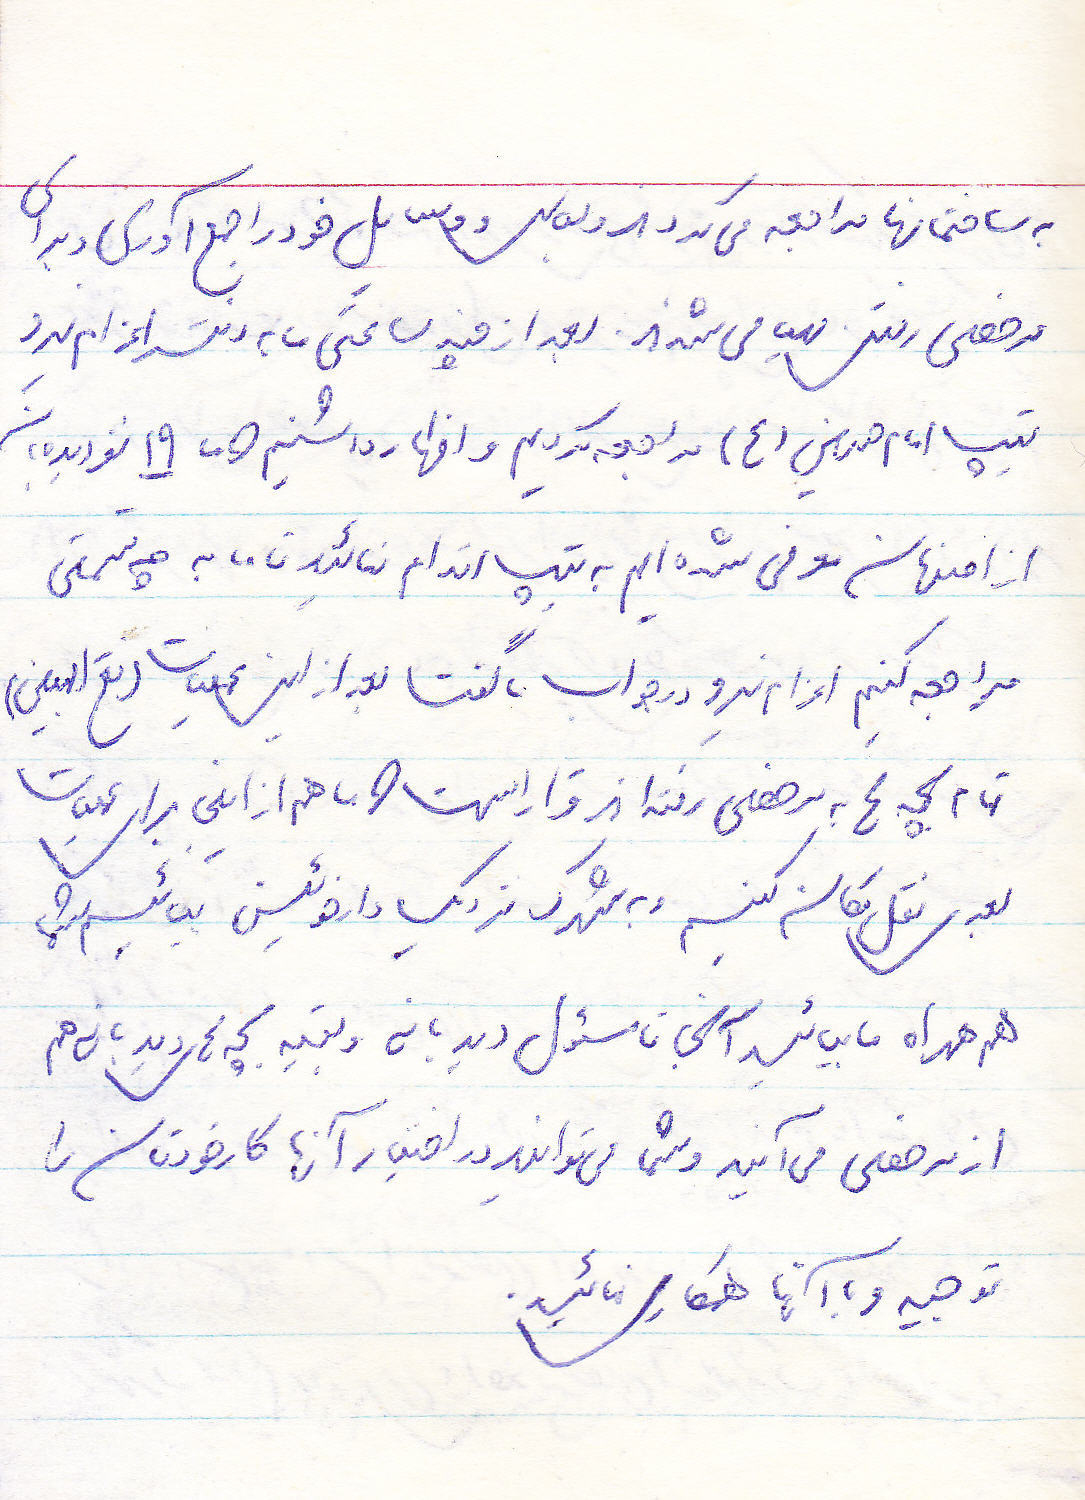 به ساختمانها مراجعه می‌کردند و لباس و وسایل خود را جمع آوری و برای
مرخصی رفتن مهیا می‌شدند. بعد از چند ساعتی ما به دفتر اعزام نیرو
تیپ امام حسین (ع) مراجعه کردیم و اظهار داشتیم که ما ۱۹ نفر دیده‌بان
از اصفهان معرفی شده ایم به تیپ اقدام نمائید تا ما به چه قسمتی
مراجعه کنیم اعزام نیرو در جواب ما گفت بعد از این عملیات (فتح المبین)
تمام بچه ها به مرخصی رفته‌اند و قرار است که ما هم از اینجا برای عملیات
بعدی نقل مکان کنیم و به شهرک نزدیک دارخوئین بیائیم شما
هم همراه ما بیائید آنجا تا مسئول دیدبانی و بقیه بچه های دیدبانی هم
از مرخصی می‌آیند و شما می‌توانید در اختیار آنها کار خودتان را
توجیه و با آنها همکاری نمائید.